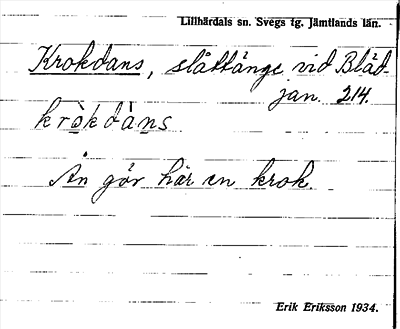 Lillhärdals sn. Svegs tg. Jämtlands län.
Krokdans, slåttänge vid Bläd-
jan. 214.
kròkdàns
Ån gör här en krok.
Erik Eriksson 1934.